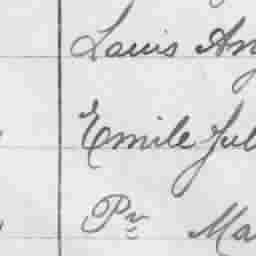 Louis An
Emile Jul
Pr Ma